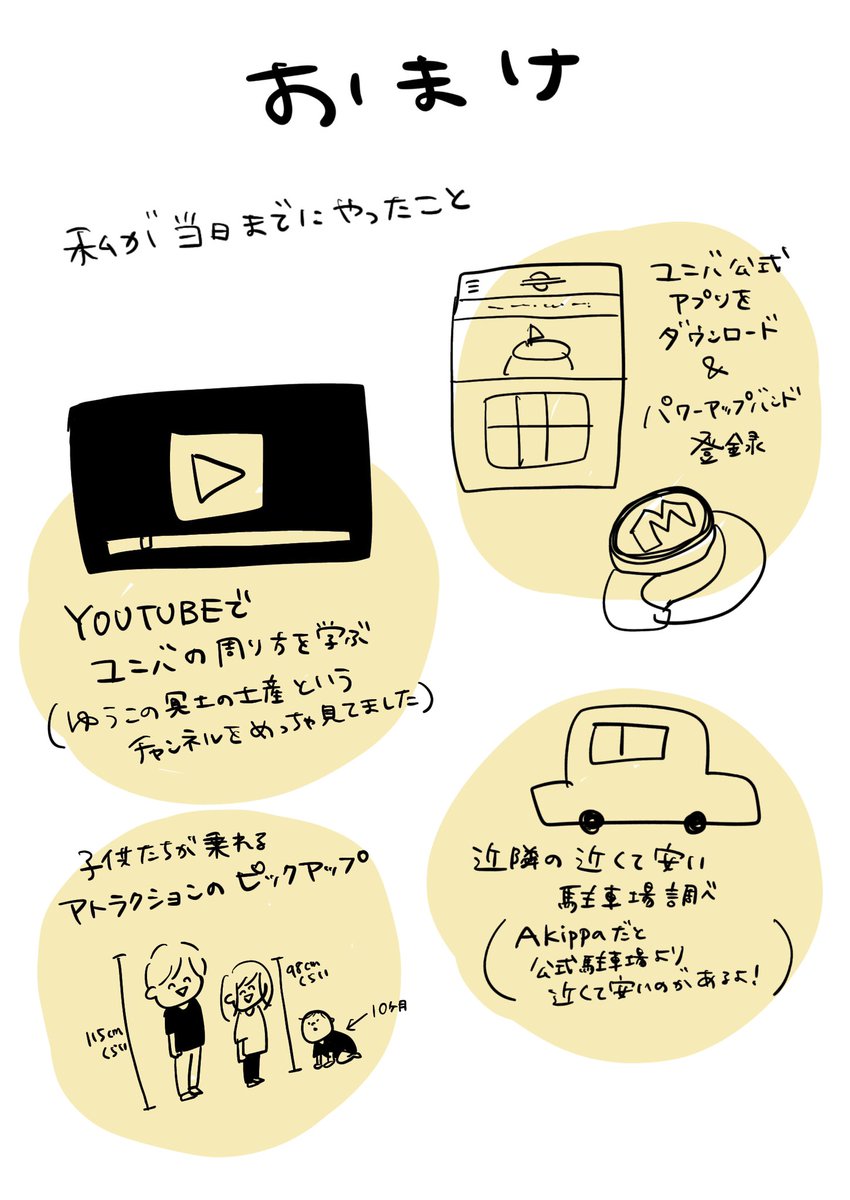 おまけ
私が当日までにやったこと
ユニバ公式
アプリを
ダウンロード
&
パワーアップバンド
登録
M
YOUTUBEで
ユニバの周り方を学ぶ
(ゆうこの冥土の土産という
チャンネルをめっちゃ見てました)
子供たちが乗れる
アトラクションのピックアップ
115cm
くらい
98cm
くらい
10ヶ月
近隣の近くて安い
駐車場調べ
(Akippaだと
公式駐車場より
近くて安いのがあるよ!)